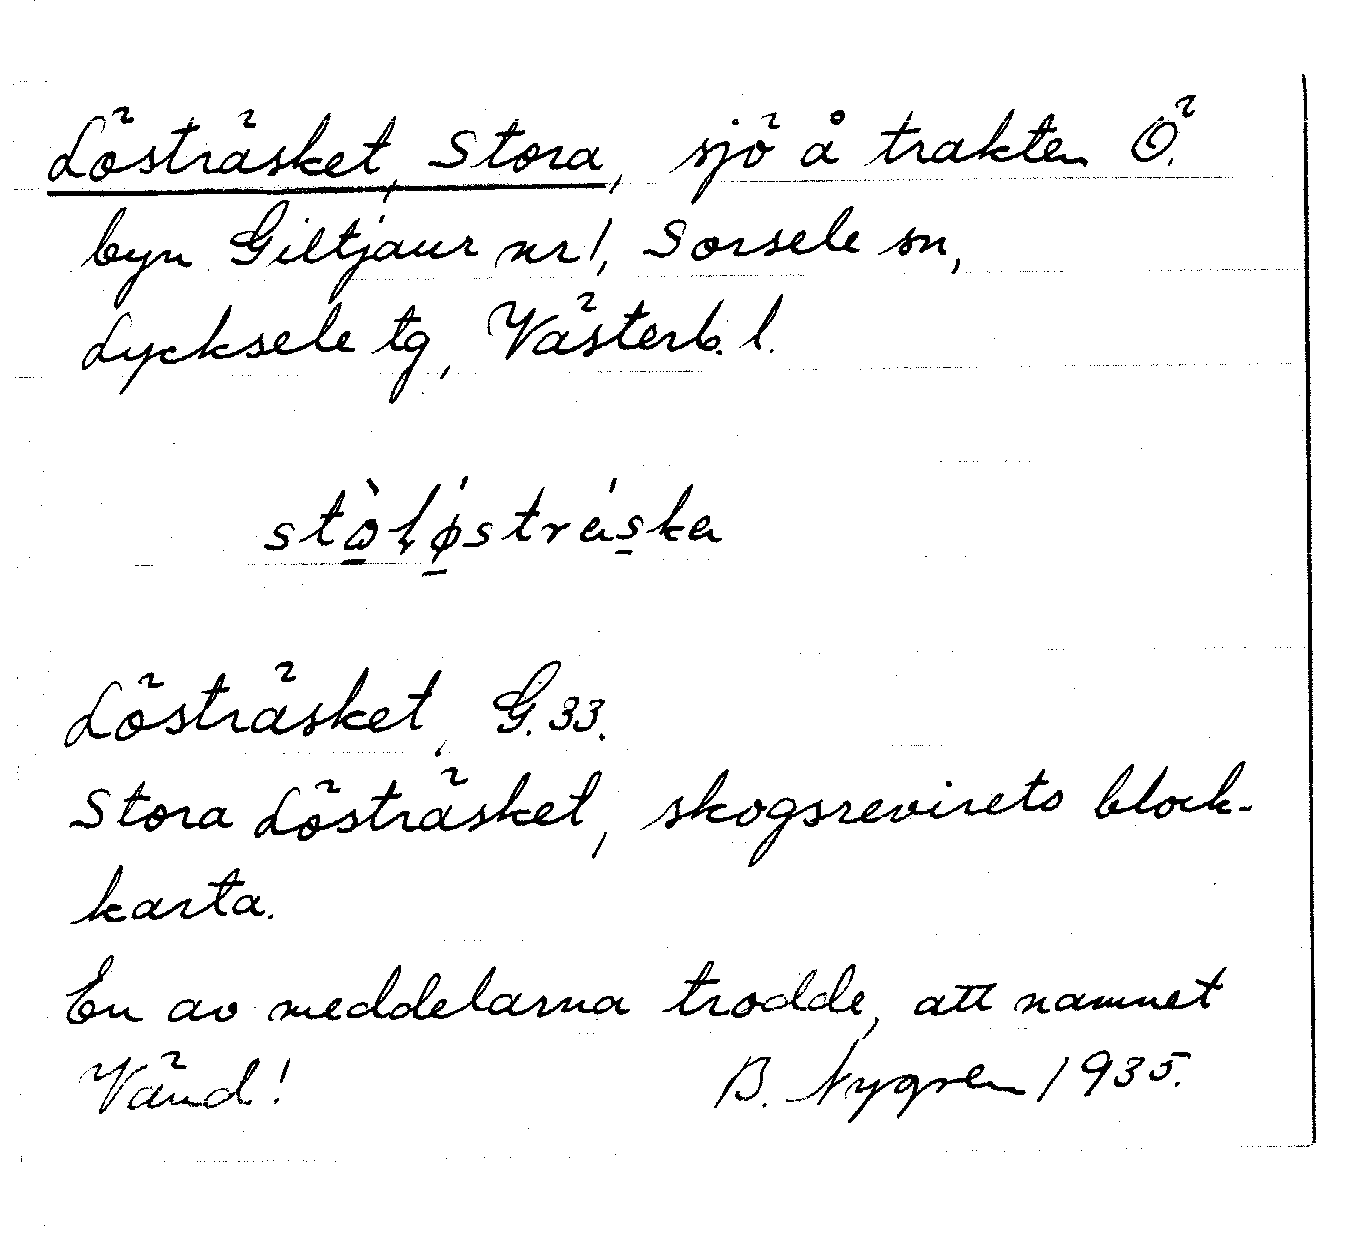 Lösträsket, Stora, sjö å trakten Ö.
byn Giltjaur nr 1, Sorsele sn,
Lycksele tg, Västerb. l.
Lösträsket, G. 33.
Stora Lösträsket, skogsrevirets block-
karta.
En av meddelarna trodde, att namnet
Vänd! B. Nygren 1935.